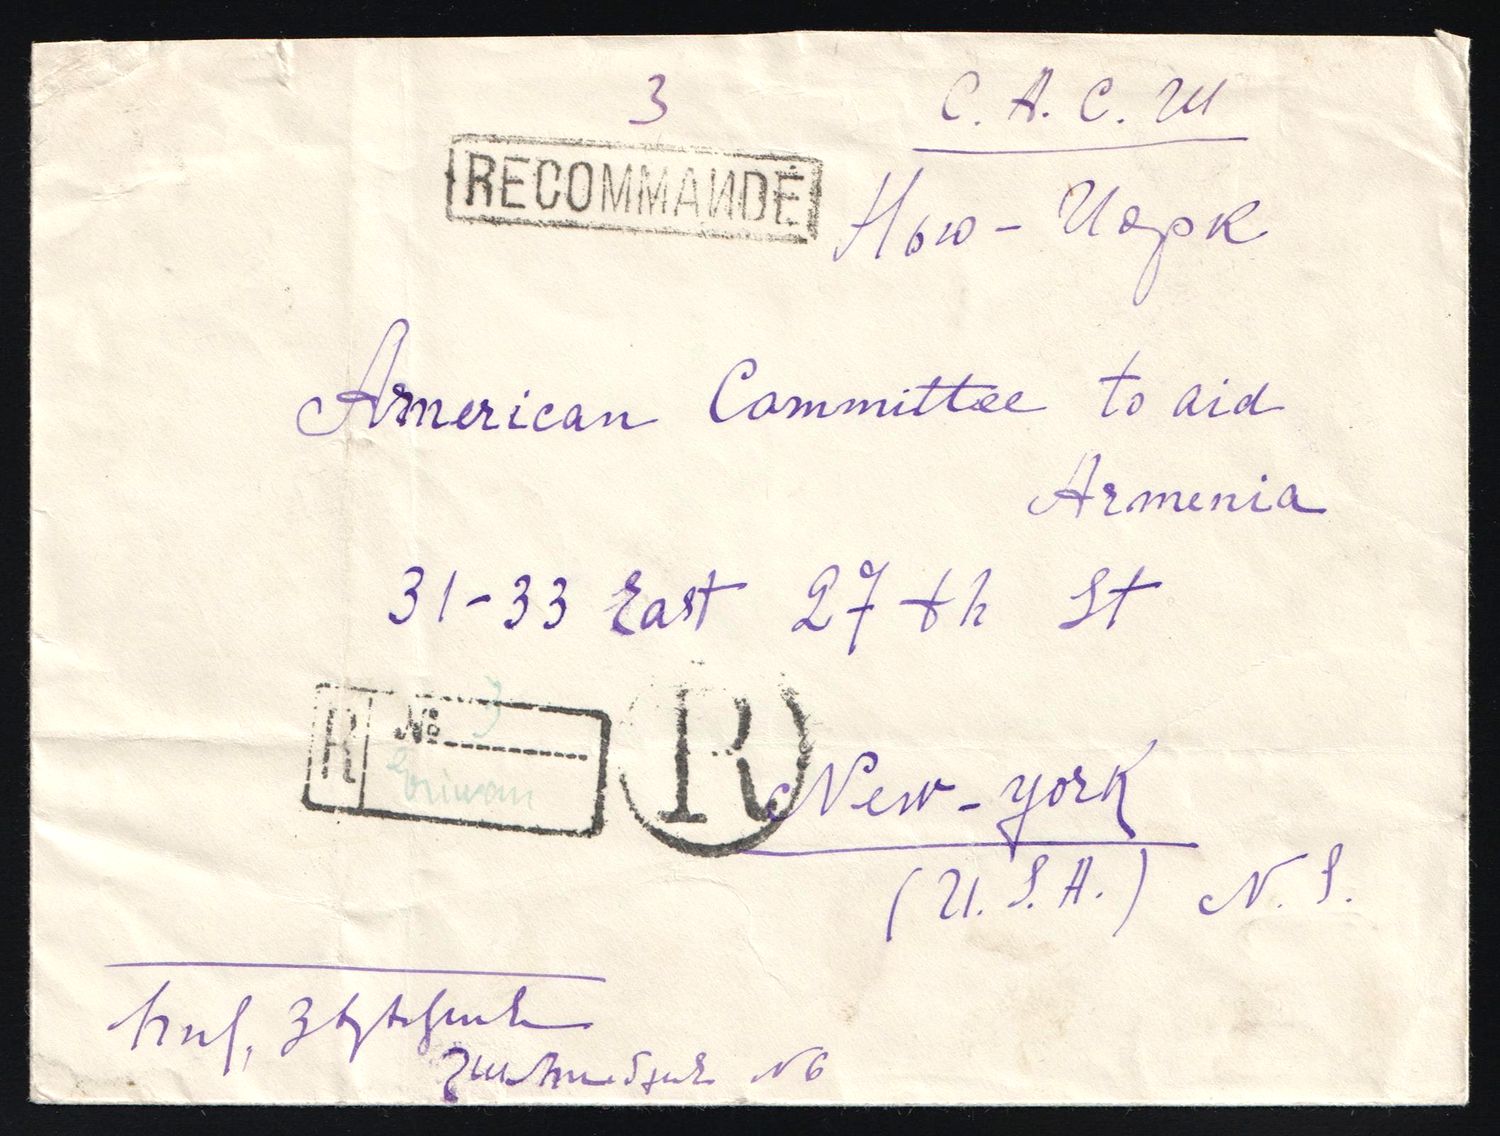 3
С. А. С. Ш
RECOMMANDÉ
Нью - Иорк
American Committee to aid
Armenia
31-33 East 27 th St
R № 3
Eriwan
R
New - york
(U. S. A.) N. S.
№ 6